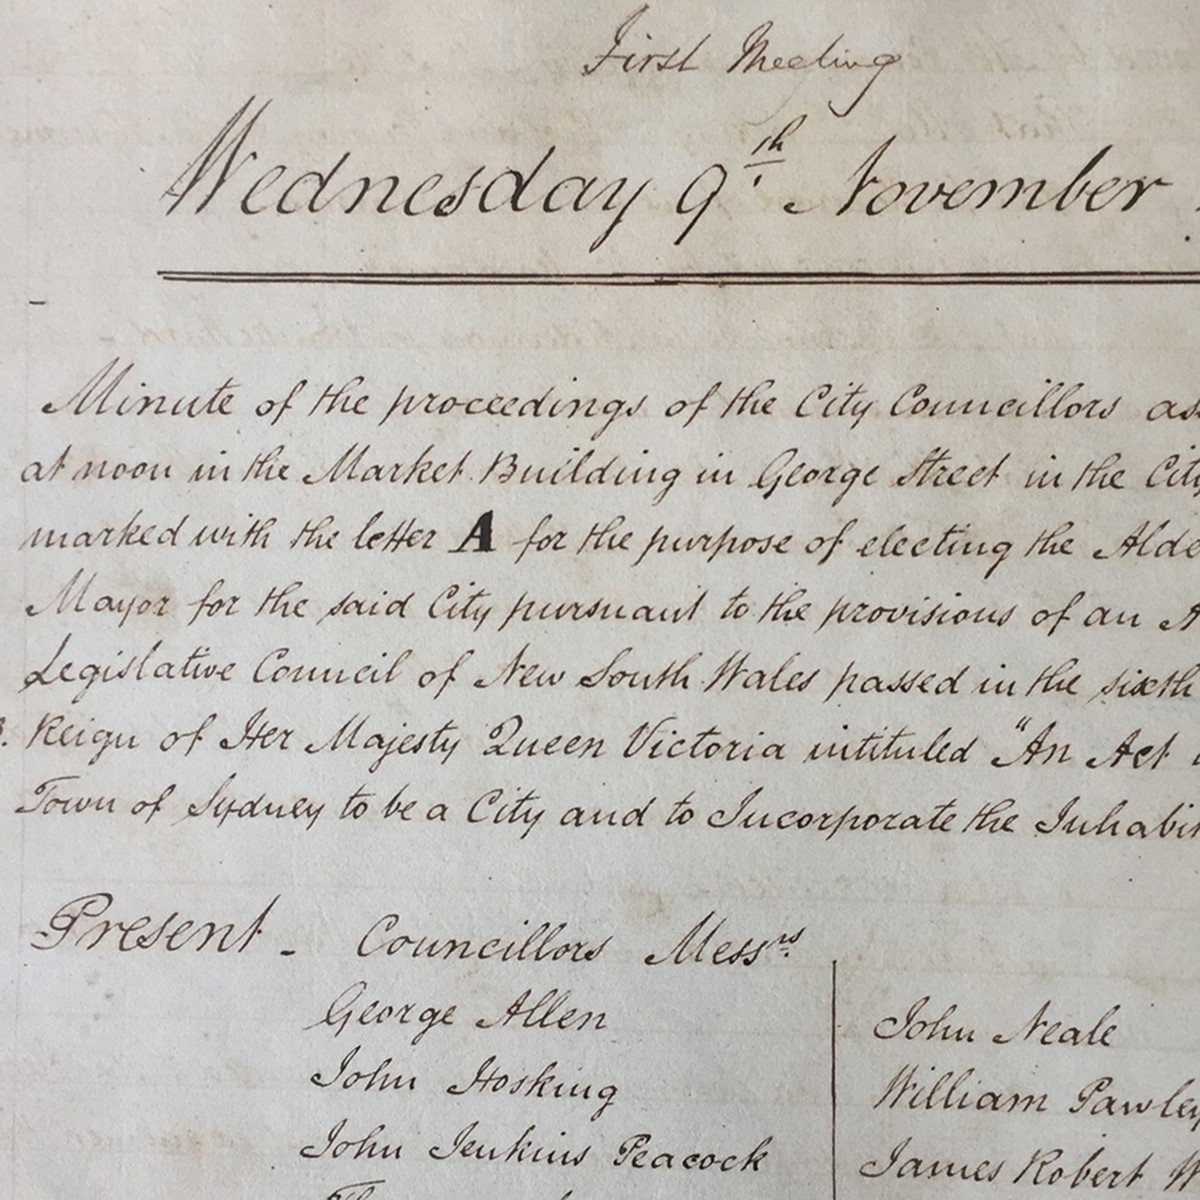 First Meeting
Wednesday 9th November
Minute of the proceedings of the City Councillors as
at noon in the Market Building in George Street in the City
marked with the letter A for the purpose of electing the Alde
Mayor for the said City pursuant to the provisions of an A
Legislative Council of New South Wales passed in the sixth
Reign of Her Majesty Queen Victoria intituled "An Act
Town of Sydney to be a City and to Incorporate the Inhabi
Present - Councillors Messrs.
George Allen
John Hosking
John Jenkins Peacock
John Neale
William Pawley
James Robert W